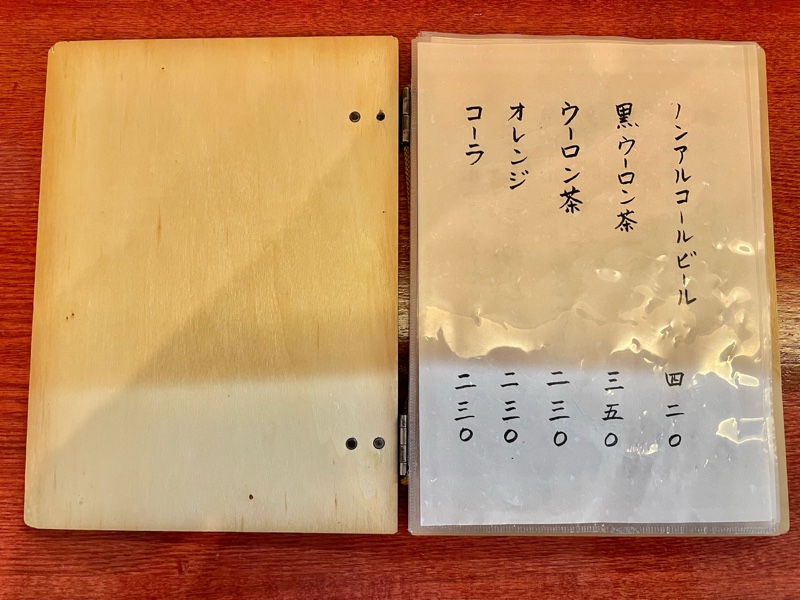 ノンアルコールビール 四二〇
黒ウーロン茶 三五〇
ウーロン茶 二三〇
オレンジ 二三〇
コーラ 二三〇